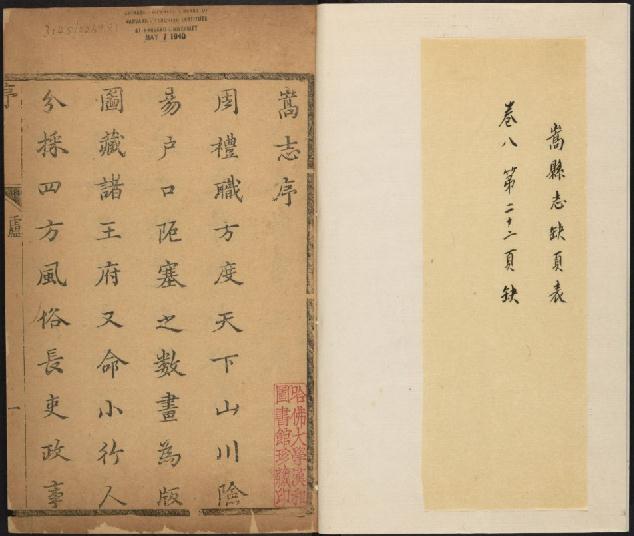 嵩縣志缺頁表
卷八 第二十二頁缺
嵩志序
周禮職方度天下山川險
易户口阨塞之數畫為版
圖藏諸王府又命小行人
分採四方風俗長吏政事
序
一
哈佛大學漢和
圖書館珍藏印
HARVARD-YENCHING INSTITUTE
AT HARVARD UNIVERSITY
MAY 1 1940